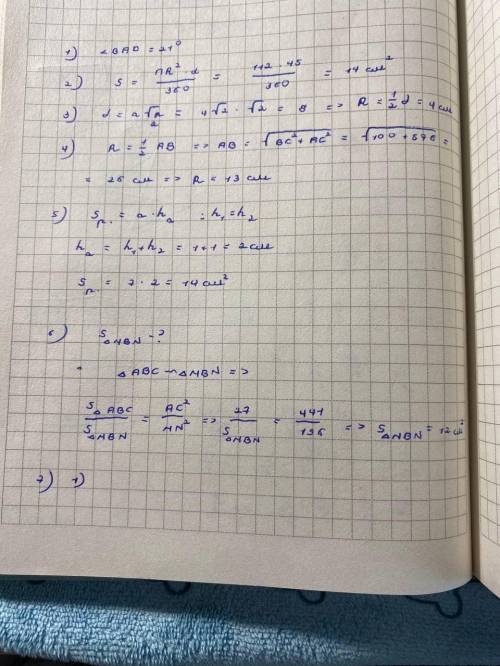 1) ∠BAD = 21°
2) S = ПR² · d / 360 = 112 · 45 / 360 = 14 см²
3) d = a√2 = 4√2 · √2 = 8 => R = 1/2 d = 4 см
4) R = 1/2 AB => AB = √BC² + AC² = √100 + 576 =
= 26 см => R = 13 см
5) Sп. = a · ha ; h₁ = h₂
ha = h₁ + h₂ = 1 + 1 = 2 см
Sп. = 7 · 2 = 14 см²
6) S△MBN - ?
△ABC ~ △MBN =>
S△ABC / S△MBN = AC² / MN² => 27 / S△MBN = 441 / 196 => S△MBN = 12 см²
7) 1)